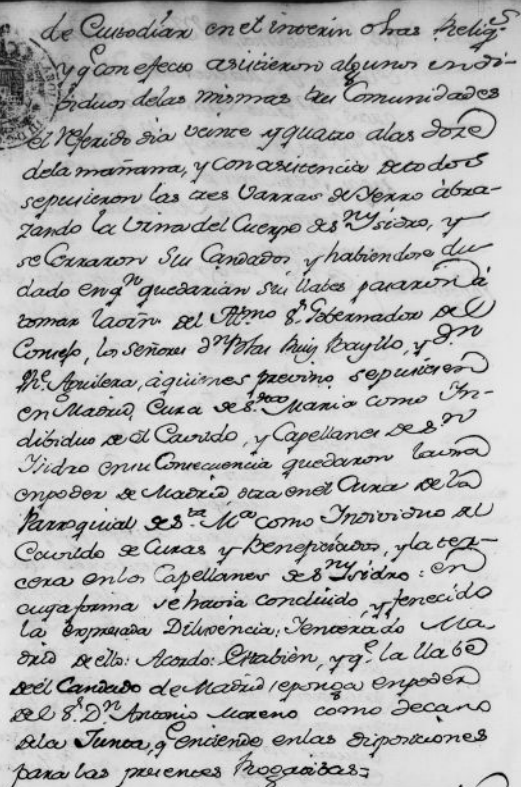 de Custodiar en el interin otras Relig.s
y q.e con efecto asistieron algunos indi-
biduos de las mismas tres Comunidades
el referido dia veinte y quatro a las doze
de la mañana, y con asistencia de todos
se pusieron las tres Varras de Yerro abra-
zando la Urna del Cuerpo de S.n Ysidro, y
se Cerraron Sus Candados y habiendose du-
dado en q.n quedarian sus llabes pasaron á
tomar la orn. del Yll.mo S.r Gobernador del
Consejo, los Señores D.n Blas Ruiz Bayllo, y D.n
Aguilera, á quienes previno, se pusiesen
en Madrid, Cura de S.ta Maria como In-
dibiduo de el Cavildo, y Capellanes de S.n
Isidro en su Consecuencia quedaron la una
en poder de Madrid otra en el Cura de la
Parroquial de S.ta M.a como Individuo del
Cavildo de Curas y Beneficiados, y la ter-
cera en los Capellanes de S.n Ysidro: en
cuya forma se havia concluido, y fenecido
la expresada Diligencia: Y enterado Ma-
drid de ello: Acordo: Esta bien, y q.e la llabe
de el Candado de Madrid se ponga en poder
del S.r D.n Antonio Moreno como decano
de la Junta, q.e entiende en las disposiciones
para las presentes Rogatibas=